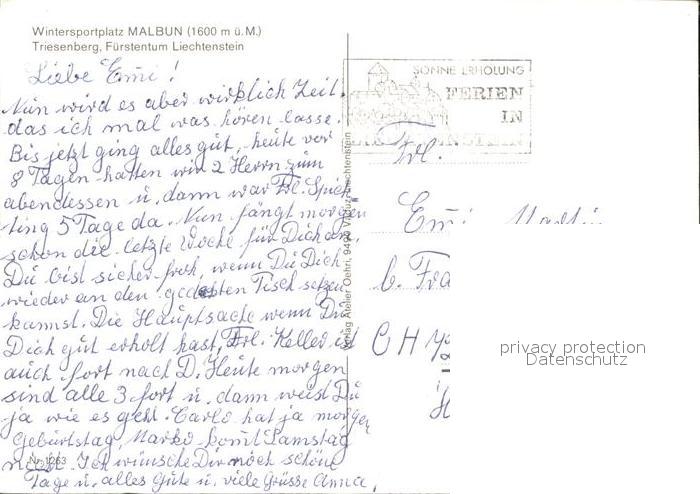 Wintersportplatz MALBUN (1600 m ü. M.)
Triesenberg, Fürstentum Liechtenstein
Liebe Emi!
Nun wird es aber wirklich Zeit
das ich mal was hören lasse.
Bis jetzt ging alles gut, heute vor
8 Tagen hatten wir 2 Herrn zum
abendessen u. dann war Frl.
5 Tage da. Nun fängt morgen
schon die letzte Woche für Dich an,
Du bist sicher froh, wenn Du Dich
wieder an den gedeckten Tisch setzen
kannst. Die Hauptsache wenn Du
Dich gut erholt hast, Frl. Keller ist
auch fort nach D. Heute morgen
sind alle 3 fort u. dann weist Du
ja wie es geht. Carlo hat ja morgen
Geburtstag, Marko komt Samstag
Nr. 1263
Ich wünsche Dir noch schöne
Tage u. alles Gute u. viele Grüsse Anna.
Verlag Atelier Oehri, 9490 Vaduz/Liechtenstein
SONNE ERHOLUNG
FERIEN
IN
LIECHTENSTEIN
Frl.
Emi
b. Fra
CH
privacy protection
Datenschutz